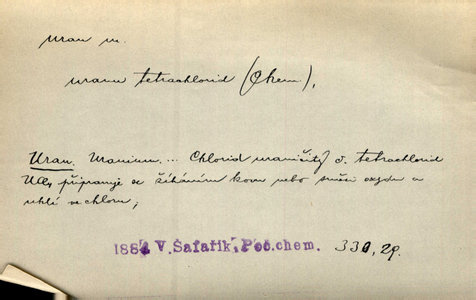 uran m.
uranu tetrachlorid (Chem.),
Uran. Uranium... Chlorid uraničitý č. tetrachlorid
UCl₄ připravuje se žíháním kovu nebo směsi oxydu a
uhlí v chloru;
1882 V. Šafařík, Poč.chem. 330, 29.